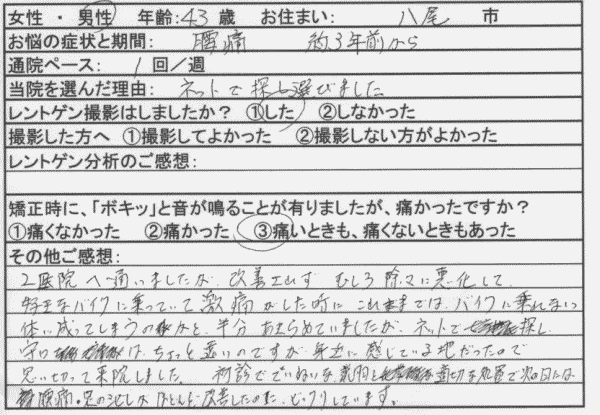 女性 ・ 男性 年齢:43 歳 お住まい: 八尾 市
お悩の症状と期間: 腰痛 約3年前から
通院ペース: 1 回/週
当院を選んだ理由: ネットで探し選びました
レントゲン撮影はしましたか? ①した ②しなかった
撮影した方へ ①撮影してよかった ②撮影しない方がよかった
レントゲン分析のご感想:
矯正時に、「ボキッ」と音が鳴ることが有りましたが、痛かったですか?
①痛くなかった ②痛かった ③痛いときも、痛くないときもあった
その他ご感想:
2医院へ通いましたが 改善せず むしろ徐々に悪化して
好きなバイクに乗っていて激痛がした時に これまでは、バイクに乗れない
体に成ってしまうのかと、半分 あきらめていましたが、ネットで探し
守口は、ちょっと遠いのですが 身近に感じている地だったので
思い切って来院しました。 初診でていねいな 説明と適切な処置で次の日には
腰痛・足のシビレがほとんど改善したのに、ビックリしています。